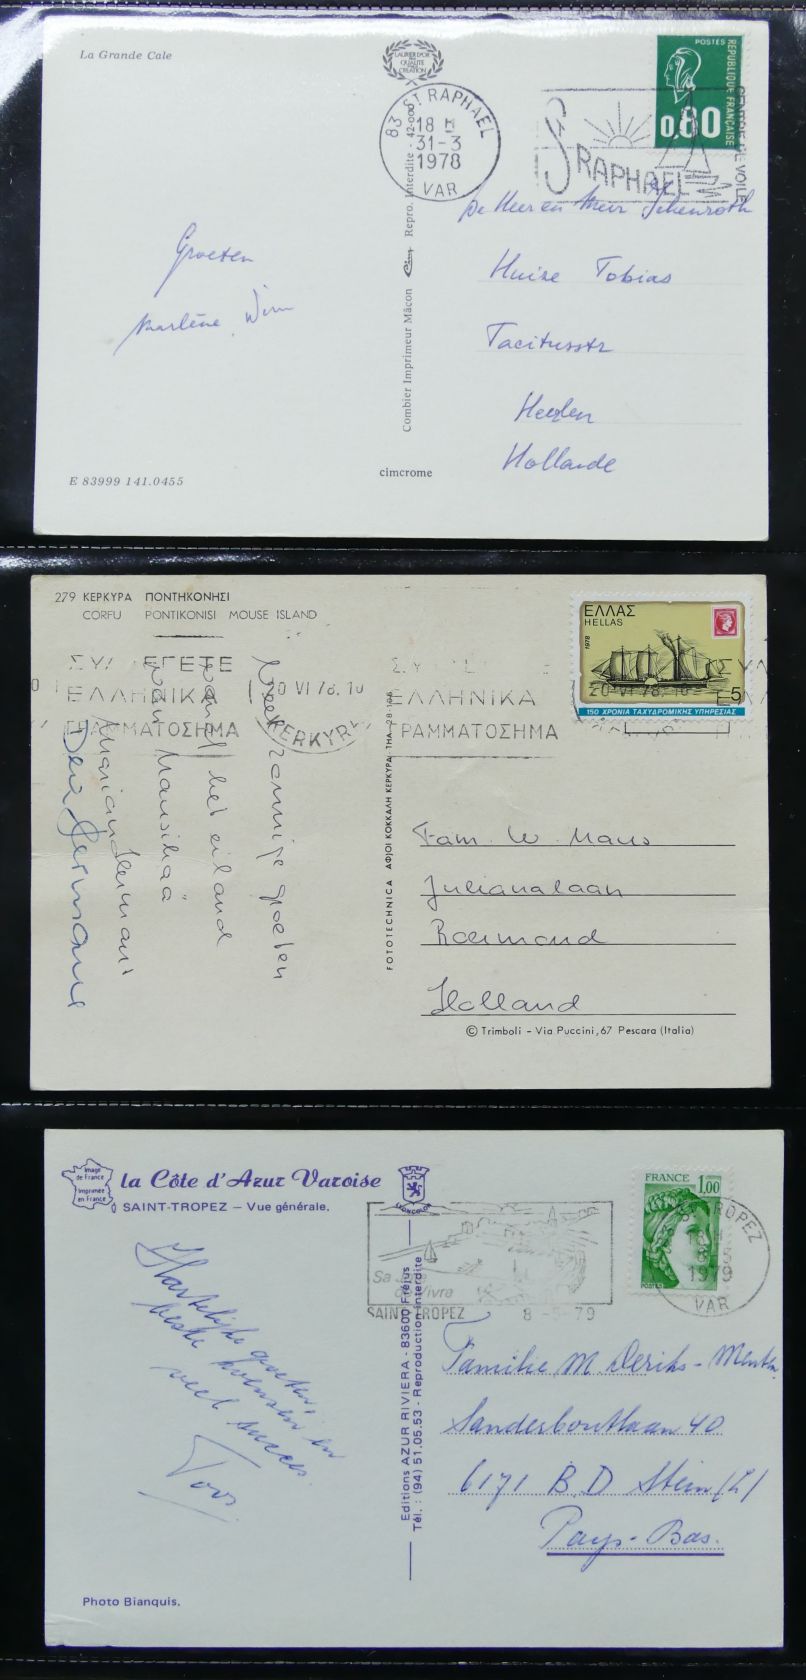 La Grande Cale
LAURIER D'OR
QUALITÉ
CRÉATION
83 ST RAPHAEL
18 H
31-3
1978
VAR
ST RAPHAEL
POSTES
REPUBLIQUE FRANÇAISE
0,80
De Heer en Mevr
Huize Tobias
Tacitusstr
Heerlen
Hollande
Groeten
Marlène Wim
Combier Imprimeur Mâcon
Repro. Interdite - 42-000
E 83999 141.0455
cimcrome
279 ΚΕΡΚΥΡΑ ΠΟΝΤΗΚΟΝΗΣΙ
CORFU PONTIKONISI MOUSE ISLAND
ΕΛΛΑΣ
HELLAS
1978
5
150 ΧΡΟΝΙΑ ΤΑΧΥΔΡΟΜΙΚΗΣ ΥΠΗΡΕΣΙΑΣ
ΕΛΛΗΝΙΚΑ
ΓΡΑΜΜΑΤΟΣΗΜΑ
20 VI 78. 10
KERKYRA
ΕΛΛΗΝΙΚΑ
ΓΡΑΜΜΑΤΟΣΗΜΑ
20 VI 78. 10
Veel zonnige groeten
vanaf het eiland
van Nausikaä
FOTOTECHNICA ΑΦ)ΟΙ ΚΟΚΚΑΛΗ ΚΕΡΚΥΡΑ ΤΗΛ. 28-106
Fam. W. Maus
Julianalaan
Roermond
Holland
© Trimboli - Via Puccini, 67 Pescara (Italia)
Image
de France
Imprimée
en France
la Côte d'Azur Varoise
SAINT-TROPEZ – Vue générale.
LYONCOLOR
FRANCE 1,00
POSTES
ST TROPEZ
1979
VAR
Sa Joie
de Vivre
SAINT TROPEZ 8-5-79
Hartelijke groeten,
beste wensen en
veel succes.
Toos.
Editions AZUR RIVIERA - 83600 Fréjus
Tél. : (94) 51.05.53 - Reproduction interdite
Familie M. Deriks-
Sanderboutlaan 40
6171 B.D Stein (L)
Pays-Bas.
Photo Bianquis.